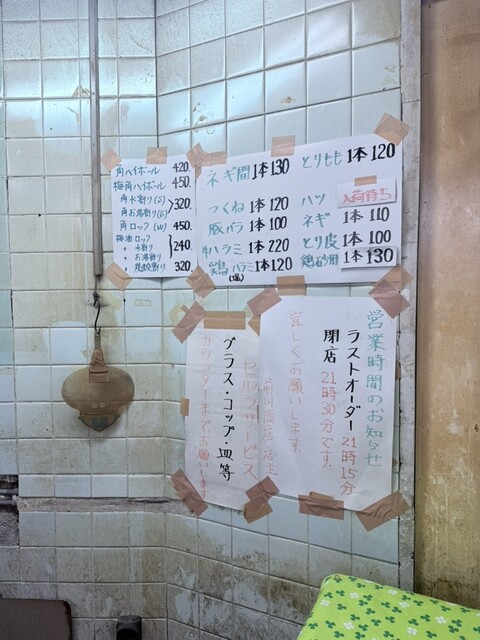 角ハイボール 420.
梅角ハイボール 450.
角水割り(S)
角お湯割り(S) 320.
角ロック(W) 450.
梅酒ロック
〃 水割り
〃 お湯割り 240.
〃 炭酸割り 320.
ネギ間 1本130
つくね 1本120
豚バラ 1本100
牛ハラミ 1本220
鶏ハラミ 1本120
(塩)
とりもも 1本120
ハツ 入荷待ち
ネギ 1本110
とり皮 1本100
鶏砂肝 1本130
営業時間のお知らせ
ラストオーダー 21時15分
閉店 21時30分です。
宜しくお願いします。
商店 店主
セルフサービス
グラス・コップ・皿等
カウンターまでお願いします